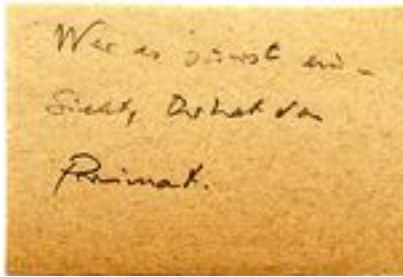 Wer es zuerst ein-
sieht, der hat den
Primat.